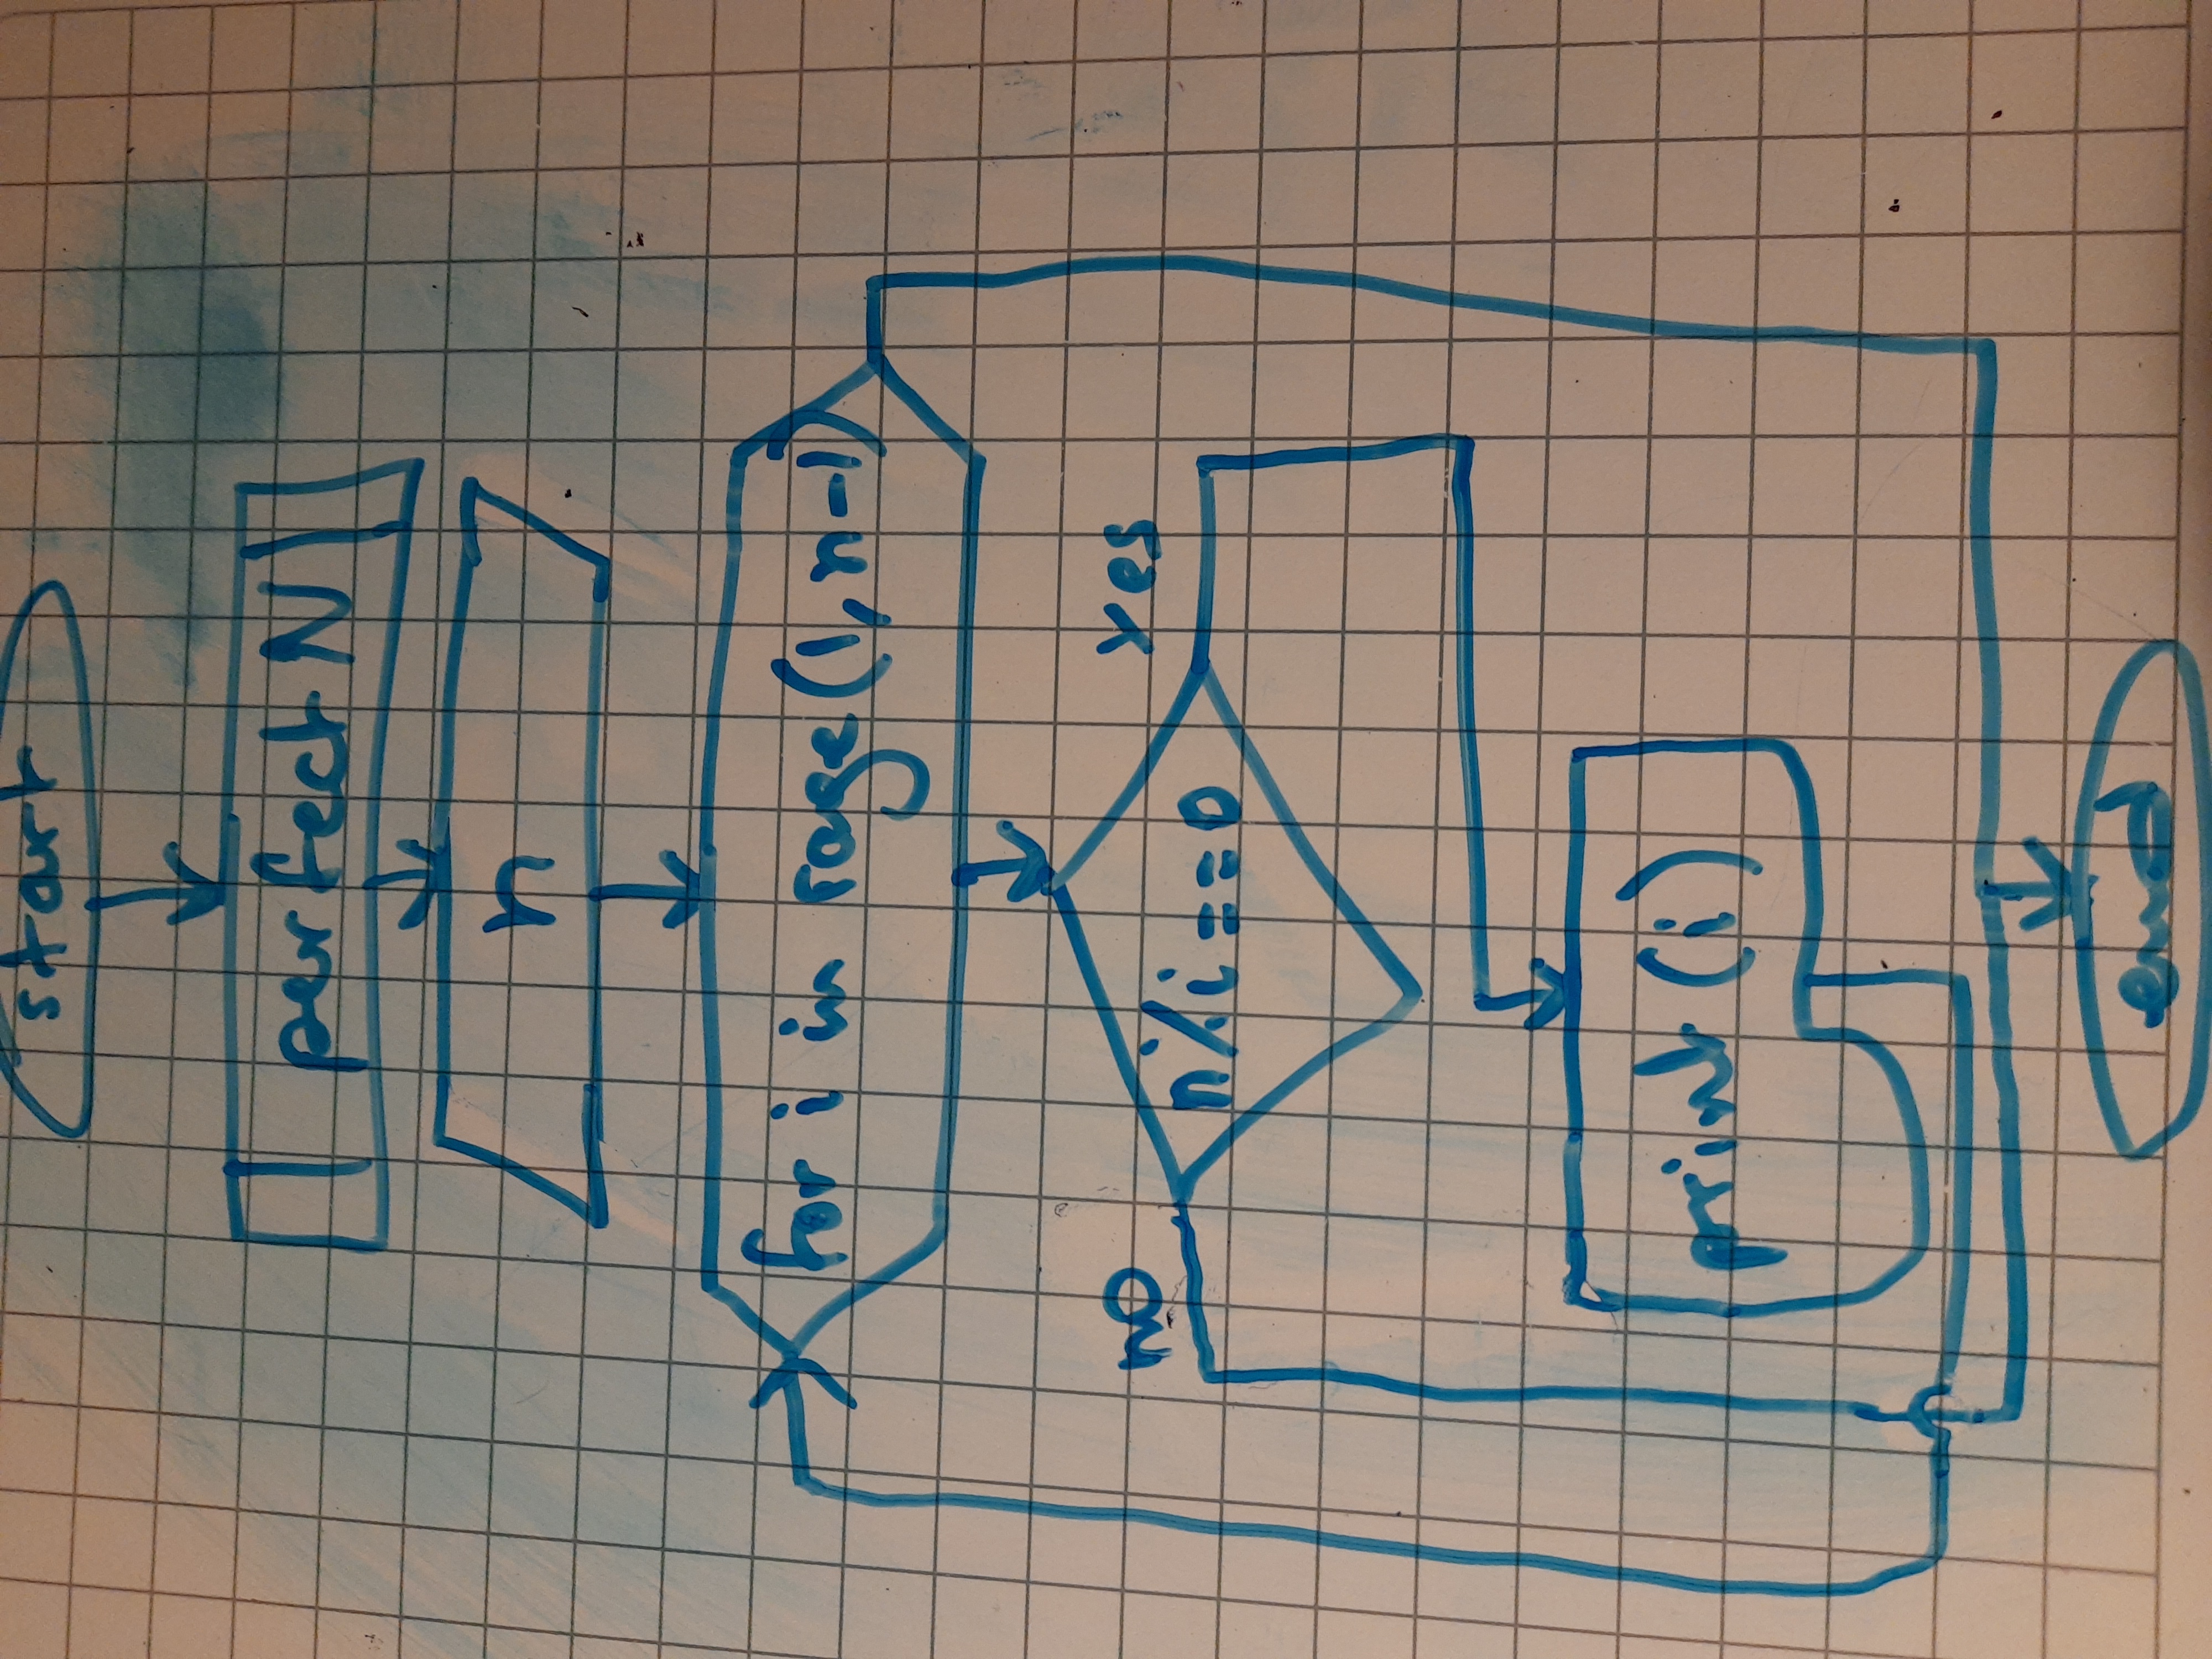 start
perfect N
n
for i in rage(1, n-1)
no
yes
n%i==0
print(i)
end